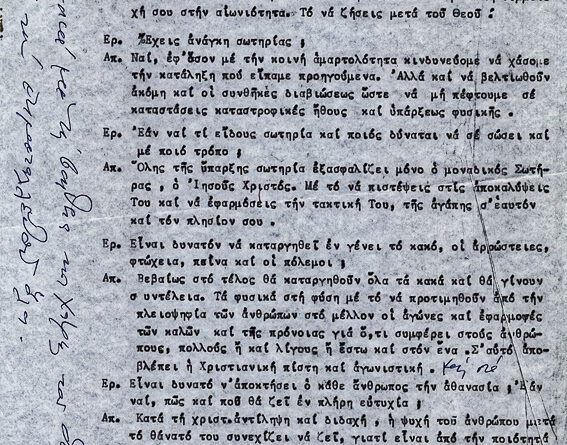 χή σου στήν αἰωνιότητα. Τό νά ζήσεις μετά τοῦ Θεοῦ :
Ερ. Ἔχεις ἀνάγκη σωτηρίας ;
Απ. Ναί, ἐφ'ὅσον μέ τήν κοινή ἁμαρτολότητα κινδυνεύομε νά χάσομε
τήν κατάληξη πού εἴπαμε προηγούμενα. Ἀλλά καί νά βελτιωθοῦν
ἀκόμη καί οἱ συνθῆκες διαβιώσεως ὥστε νά μή πέφτουμε σέ
καταστάσεις καταστροφικές ἤθους καί ὑπάρξεως φυσικῆς .
Ερ. Ἐάν ναί τί εἴδους σωτηρία καί ποιός δύναται νά σέ σώσει καί
μέ ποιό τρόπο ;
Απ. Ὅλης τῆς ὕπαρξης σωτηρία ἐξασφαλίζει μόνο ὁ μοναδικός Σωτή-
ρας , ὁ Ἰησοῦς Χριστός. Μέ τό νά πιστέψεις στίς ἀποκαλύψεις
Του καί νά ἐφαρμόσεις τήν τακτική Του, τῆς ἀγάπης σ'ἑαυτόν
καί τόν πλησίον σου .
Ερ. Εἶναι δυνατόν νά καταργηθεῖ ἐν γένει τό κακό, οἱ ἀρρώστειες,
φτώχεια, πεῖνα καί οἱ πόλεμοι ;
Απ. Βεβαίως στό τέλος θά καταργηθοῦν ὅλα τά κακά καί θά γίνουν
σ υντέλεια. Τά φυσικά στή φύση μέ τό νά προτιμηθοῦν ἀπό τήν
πλειοψηφία τῶν ἀνθρώπων στό μέλλον οἱ ἀγῶνες καί ἐφαρμογές
τῶν καλῶν καί τῆς πρόνοιας γιά ὅ,τι συμφέρει στούς ἀνθρώ-
πους, πολλούς ἤ καί λίγους ἤ ἔστω καί στόν ἕνα .Σ'αὐτό ἀπο-
βλέπει ἡ Χριστιανική πίστη καί ἀγωνιστική .
Ερ. Εἶναι δυνατό ν'ἀποκτήσει ὁ κάθε ἄνθρωπος τήν ἀθανασία ; Ἐάν
ναί, πῶς καί ποῦ θά ζεῖ ἐν πλήρη εὐτυχία ;
Απ. Κατά τή χριστ.ἀντίληψη καί διδαχή , ἡ ψυχή τοῦ ἀνθρώπου μετά
τό θάνατό του συνεχίζει νά ζεῖ, γιατί εἶναι ἀπό τήν ποιότητά